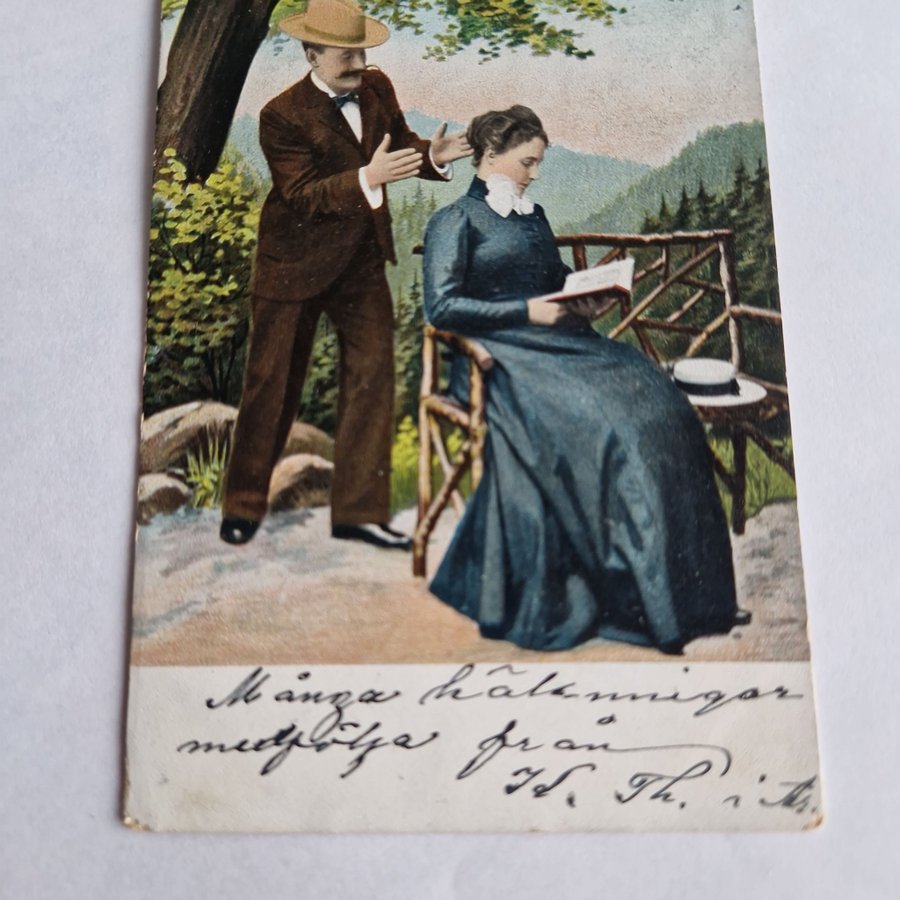 Många hälsningar
medfölja från
Id. Th. i